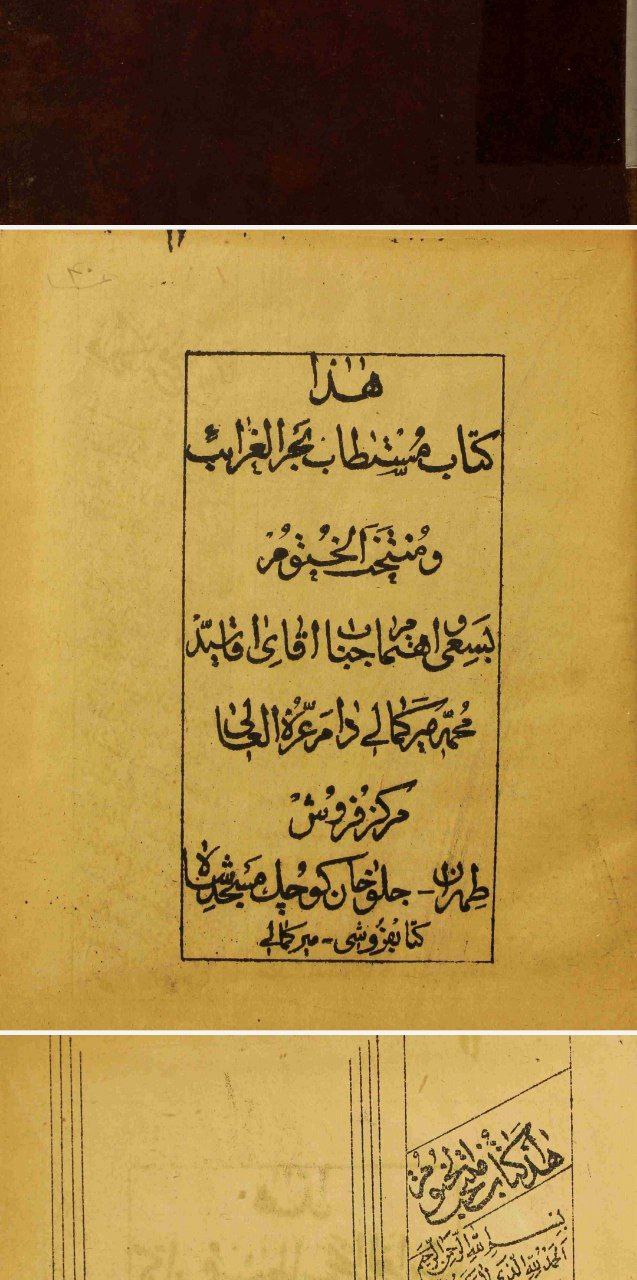 هٰذا
كتاب مستطاب بحر الغرايب
و منتخب الختوم
بسعی و اهتمام جناب اقای اقا سید
محمد میرکمالی دام عزه العالی
مرکز فروش
طهران - جلوخان کوچک مسجد شاه
کتابفروشی - میرکمالی
هذا کتاب الختوم
بسم الله الرحمن الرحيم
الحمد لله الذی